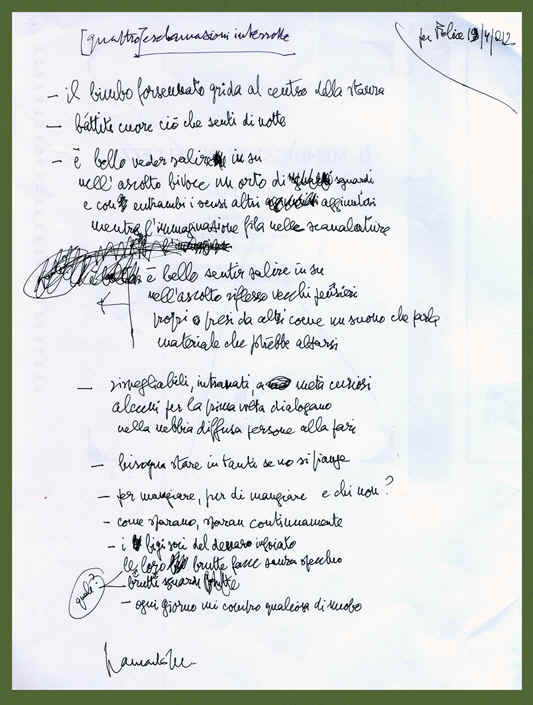 [quattro] esclamazioni interrotte
per Felice 19/4/2012
– il bimbo forsennato grida al centro della stanza
– battito cuore ciò che senti di notte
– è bello veder salire in su
nell'ascolto bivoce un orto di sguardi
e con entrambi i sensi altri aggiuntori
mentre l'immaginazione fila nelle scanalature
è bello sentir salire in su
nell'ascolto riflesso vecchi pensieri
propri o presi da altri come un suono che parla
materiale che potrebbe alzarsi
– risvegliabili, intronati, a metà curiosi
alcuni per la prima volta dialogano
nella nebbia diffusa persone alla pari
– bisogna stare in tanti se no si piange
– per mangiare, pur di mangiare e chi non?
– come sparano, sparan continuamente
– i bigi soci del denaro
le loro brutte facce senza specchio
quale?
brutti sguardi
– ogni giorno mi compro qualcosa di nuovo